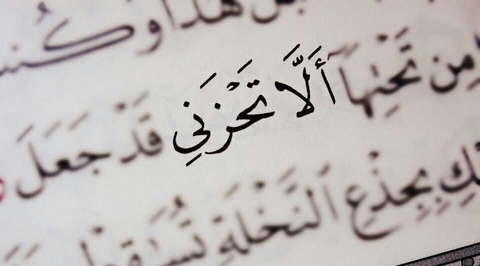 هَٰذَا وَكُنتُ
مِن تَحْتِهَا أَلَّا تَحْزَنِي قَدْ جَعَلَ
بِجِذْعِ ٱلنَّخْلَةِ تُسَٰقِطْ